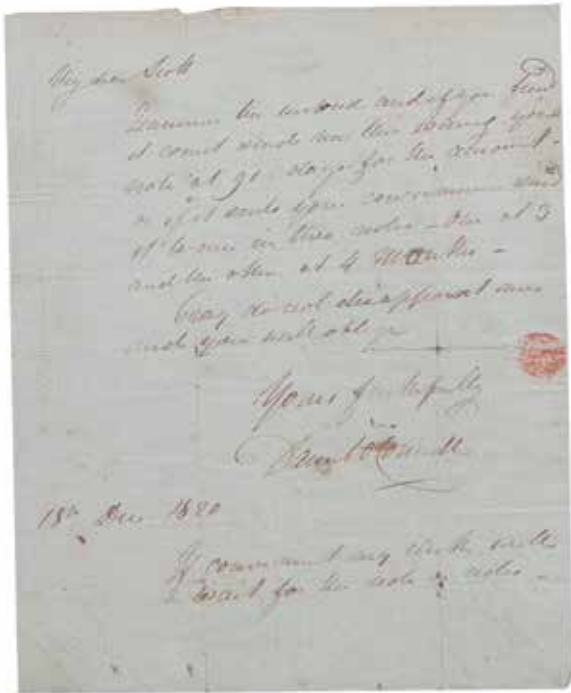 My dear Scott
Examine the enclosed and if you find
it correct send me this evening your
note at 90 days for the amount -
or if it suits your convenience
in two notes - One at 3
and the other at 4 Months -
Pray do not disappoint me
and you will oblige
Yours faithfully
Daniel O'Connell
18th Dec 1820
If convenient my clerk will
wait for the note or notes -